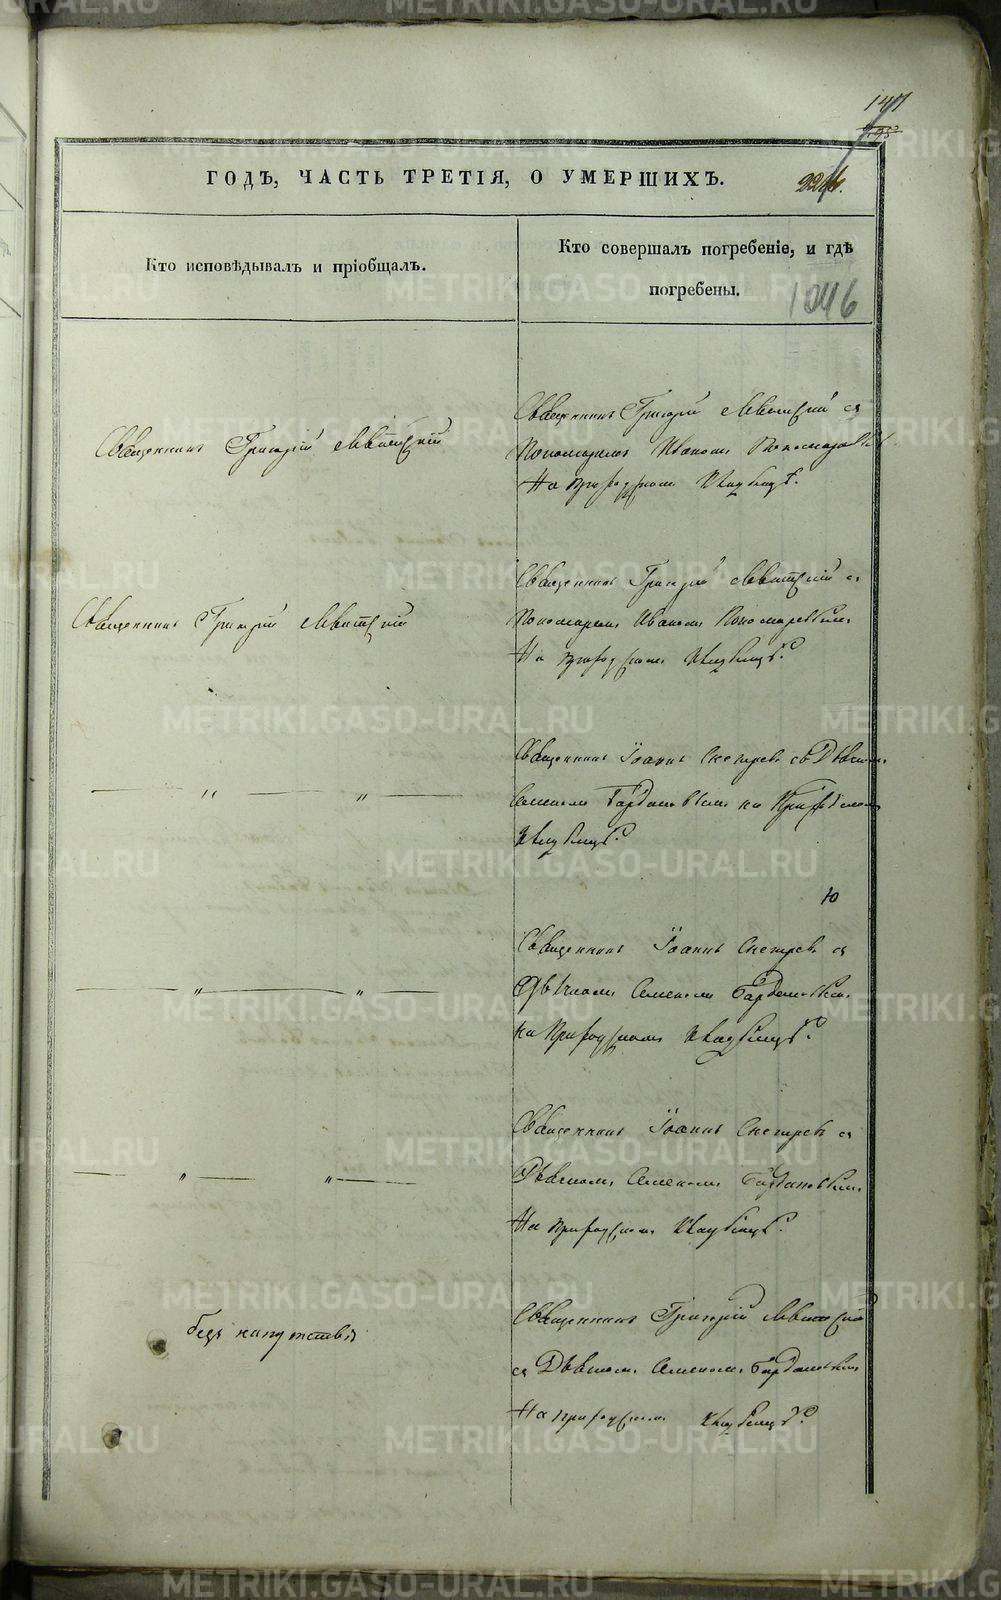 147
195
ГОДЪ, ЧАСТЬ ТРЕТІЯ, О УМЕРШИХЪ.
224.
Кто исповѣдывалъ и пріобщалъ.
Кто совершалъ погребеніе, и гдѣ
погребены.
1046
Священникъ Григорій Левитскій
Священникъ Григорій Левитскій съ
Пономаремъ Иваномъ Пономаревымъ
На приходскомъ кладбищѣ.
Священникъ Григорій Левитскій
Священникъ Григорій Левитскій съ
Пономаремъ Иваномъ Пономаревымъ
На приходскомъ кладбищѣ.
— „ — „ —
Священникъ Іоаннъ съ Дьячкомъ
Семеномъ на Приходскомъ
кладбищѣ.
Ю
— „ — „ —
Священникъ Іоаннъ съ
Дьячкомъ Семеномъ
на Приходскомъ кладбищѣ.
— „ — „ —
Священникъ Іоаннъ съ
Дьячкомъ Семеномъ
На приходскомъ кладбищѣ.
безъ напутствія
Священникъ Григорій Левитскій
съ Дьячкомъ Семеномъ
На приходскомъ кладбищѣ.
METRIKI.GASO-URAL.RU